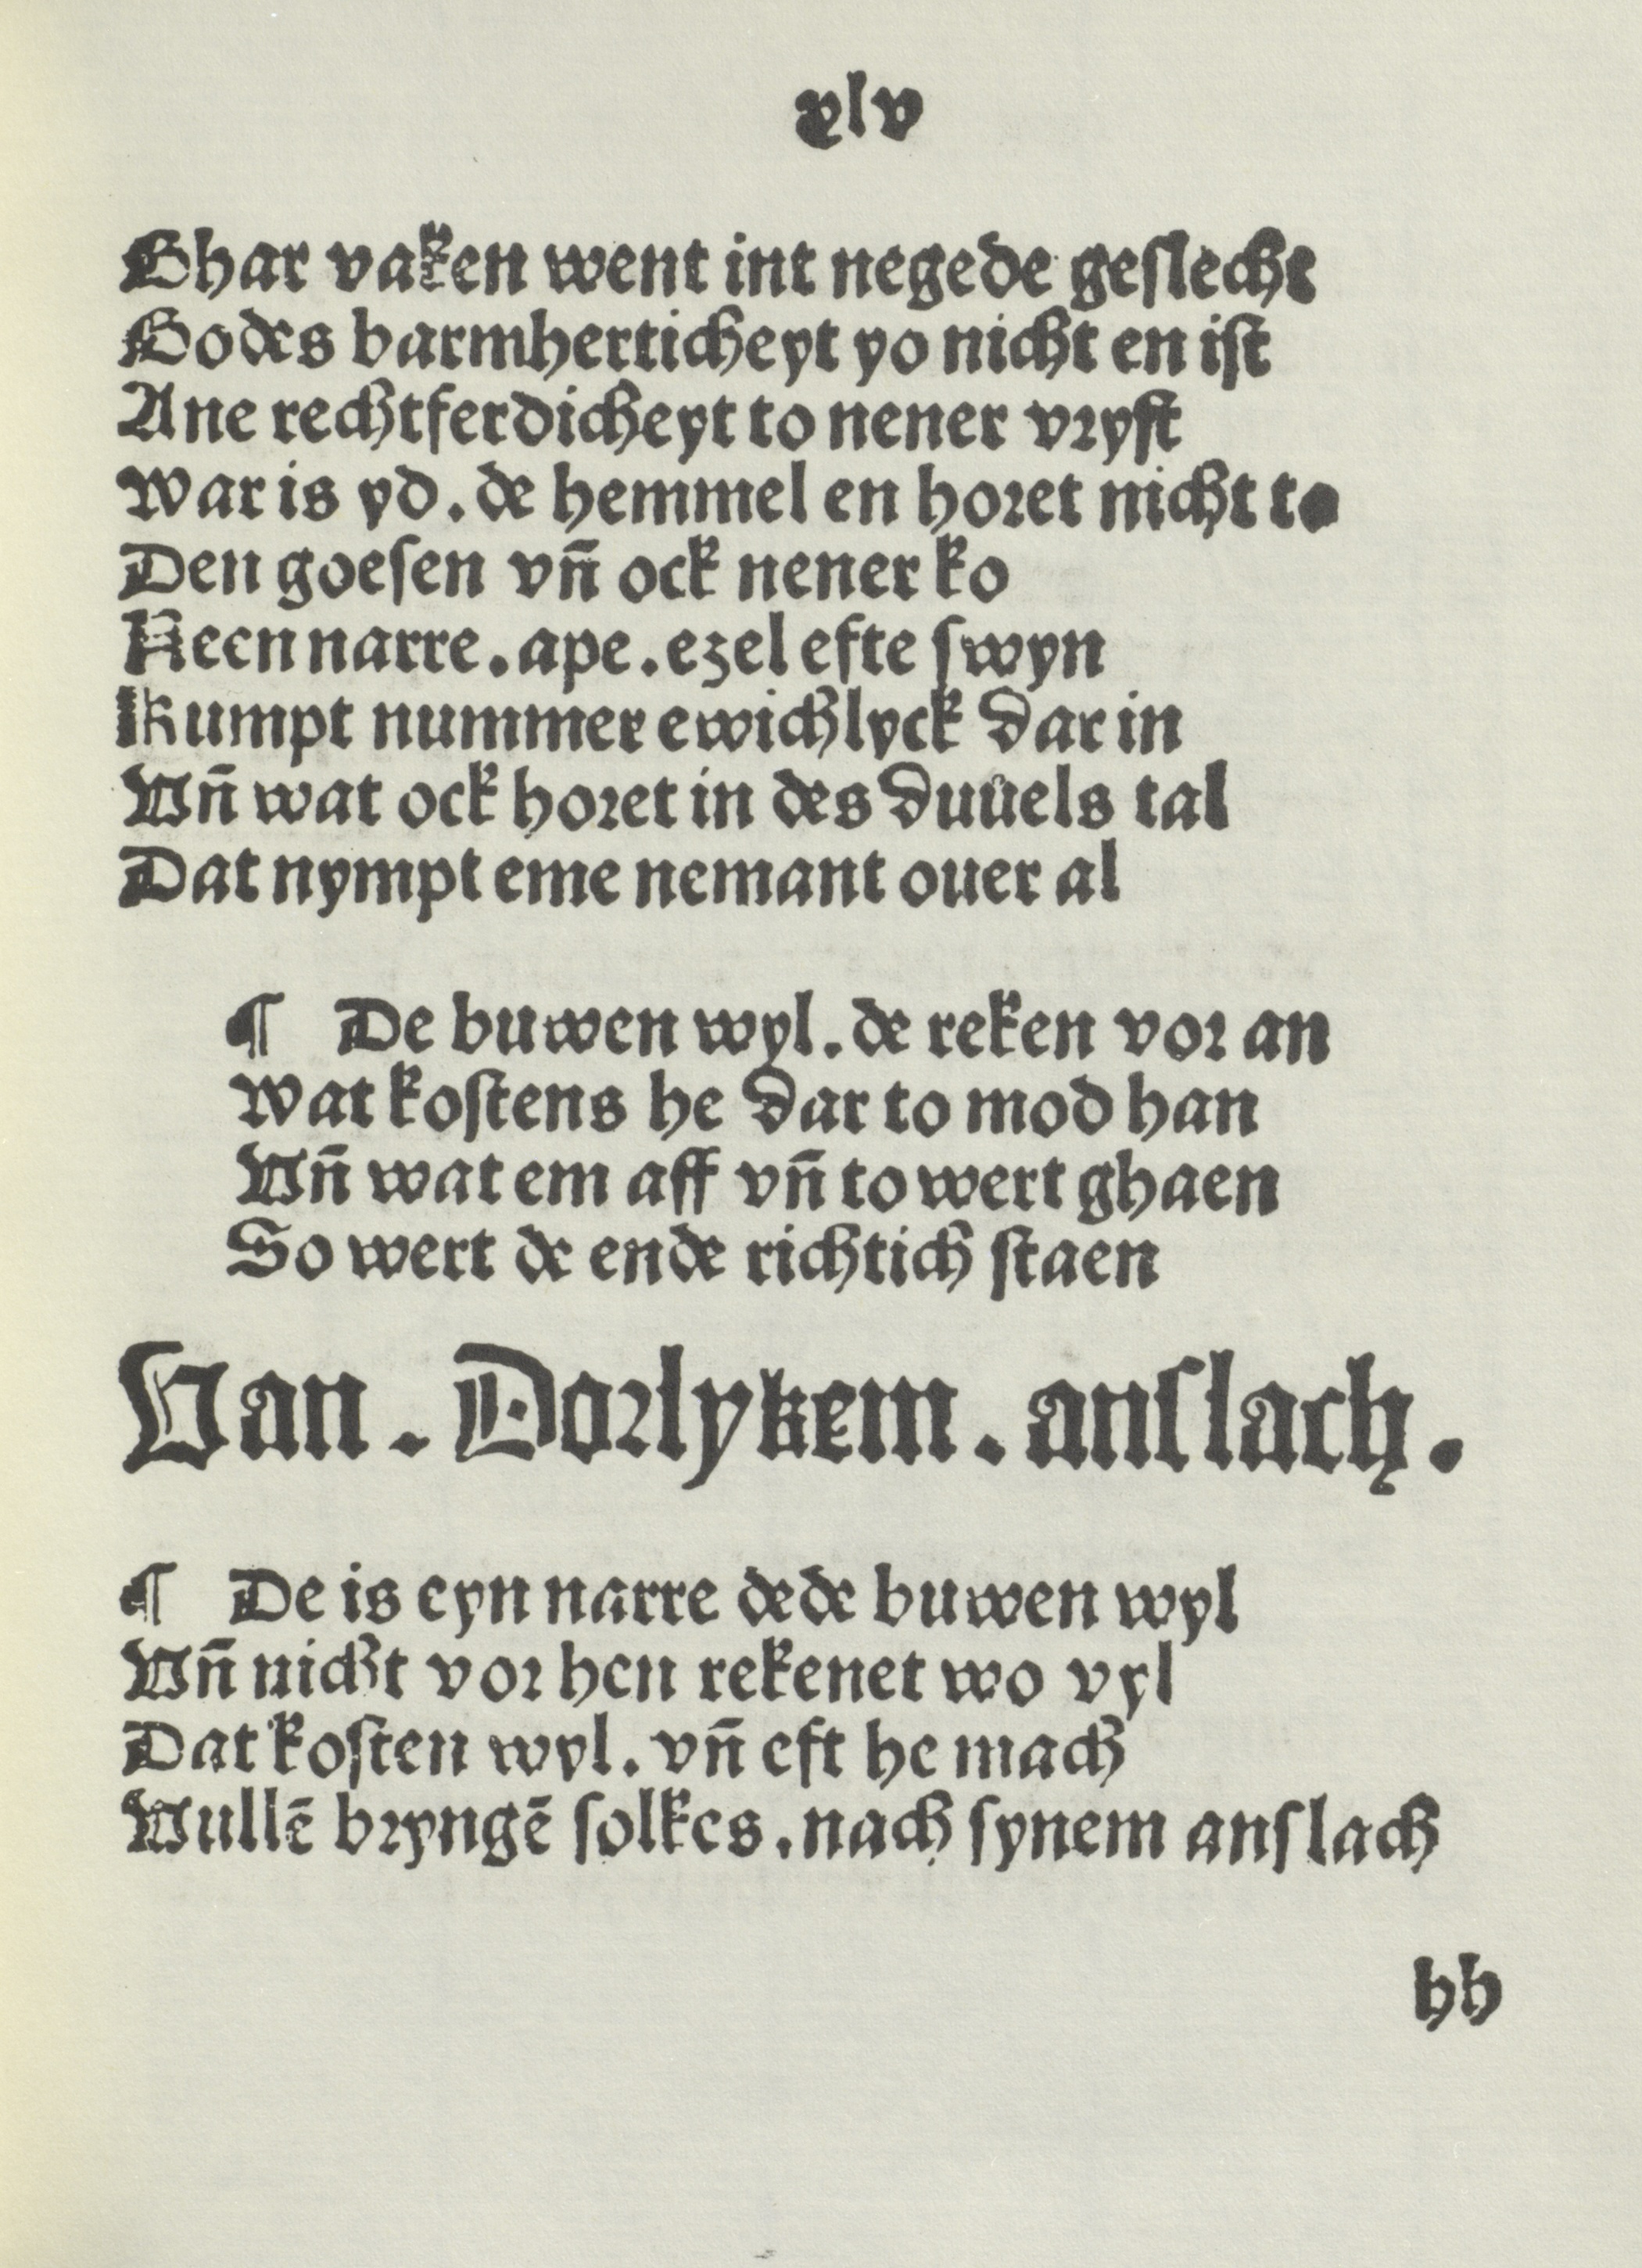 xlv
Ghar vaken went int negede geſlecht
Godes barmherticheyt yo nicht en iſt
Ane rechtferdicheyt to nener vryſt
War is yd. de hemmel en horet nicht to
Den goeſen vn̄ ock nener ko
Keen narre. ape. ezel efte ſwyn
Kumpt nummer ewichlyck dar in
Vn̄ wat ock horet in des duuels tal
Dat nympt eme nemant ouer al
¶ De buwen wyl. de reken vor an
Wat koſtens he dar to mod han
Vn̄ wat em aff vn̄ to wert ghaen
So wert de ende richtich ſtaen
Van. Dorlykem. anſlach.
¶ De is eyn narre dede buwen wyl
Vn̄ nicht vor hen rekenet wo vyl
Dat koſten wyl. vn̄ eft he mach
Vullē bryngē ſolkes. nach ſynem anſlach
hh